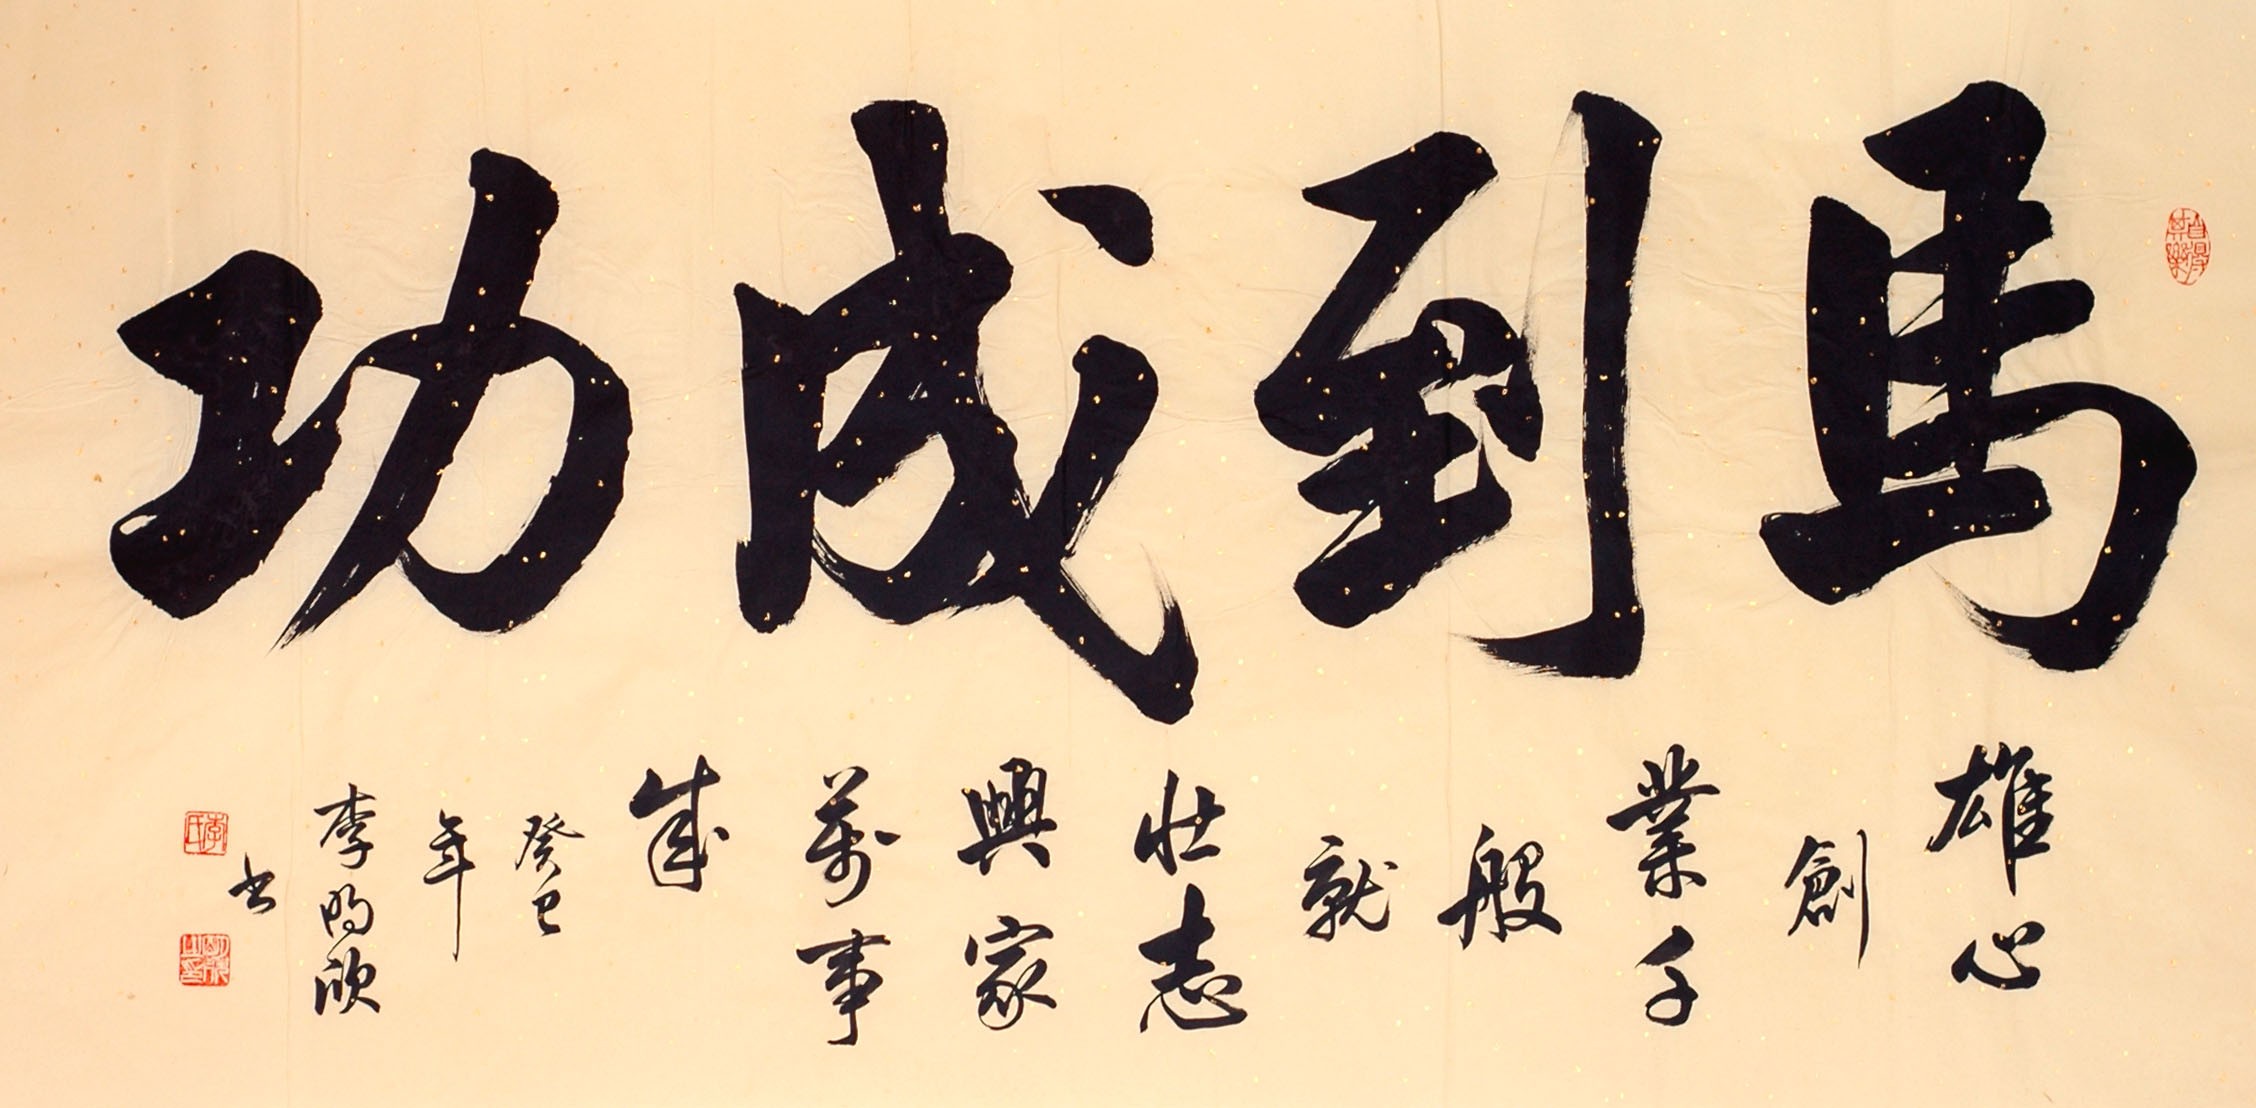 馬到成功
雄心
創
業千
般
就
壯志
興家
萬事
成
癸巳
年
李明欣
书
李氏